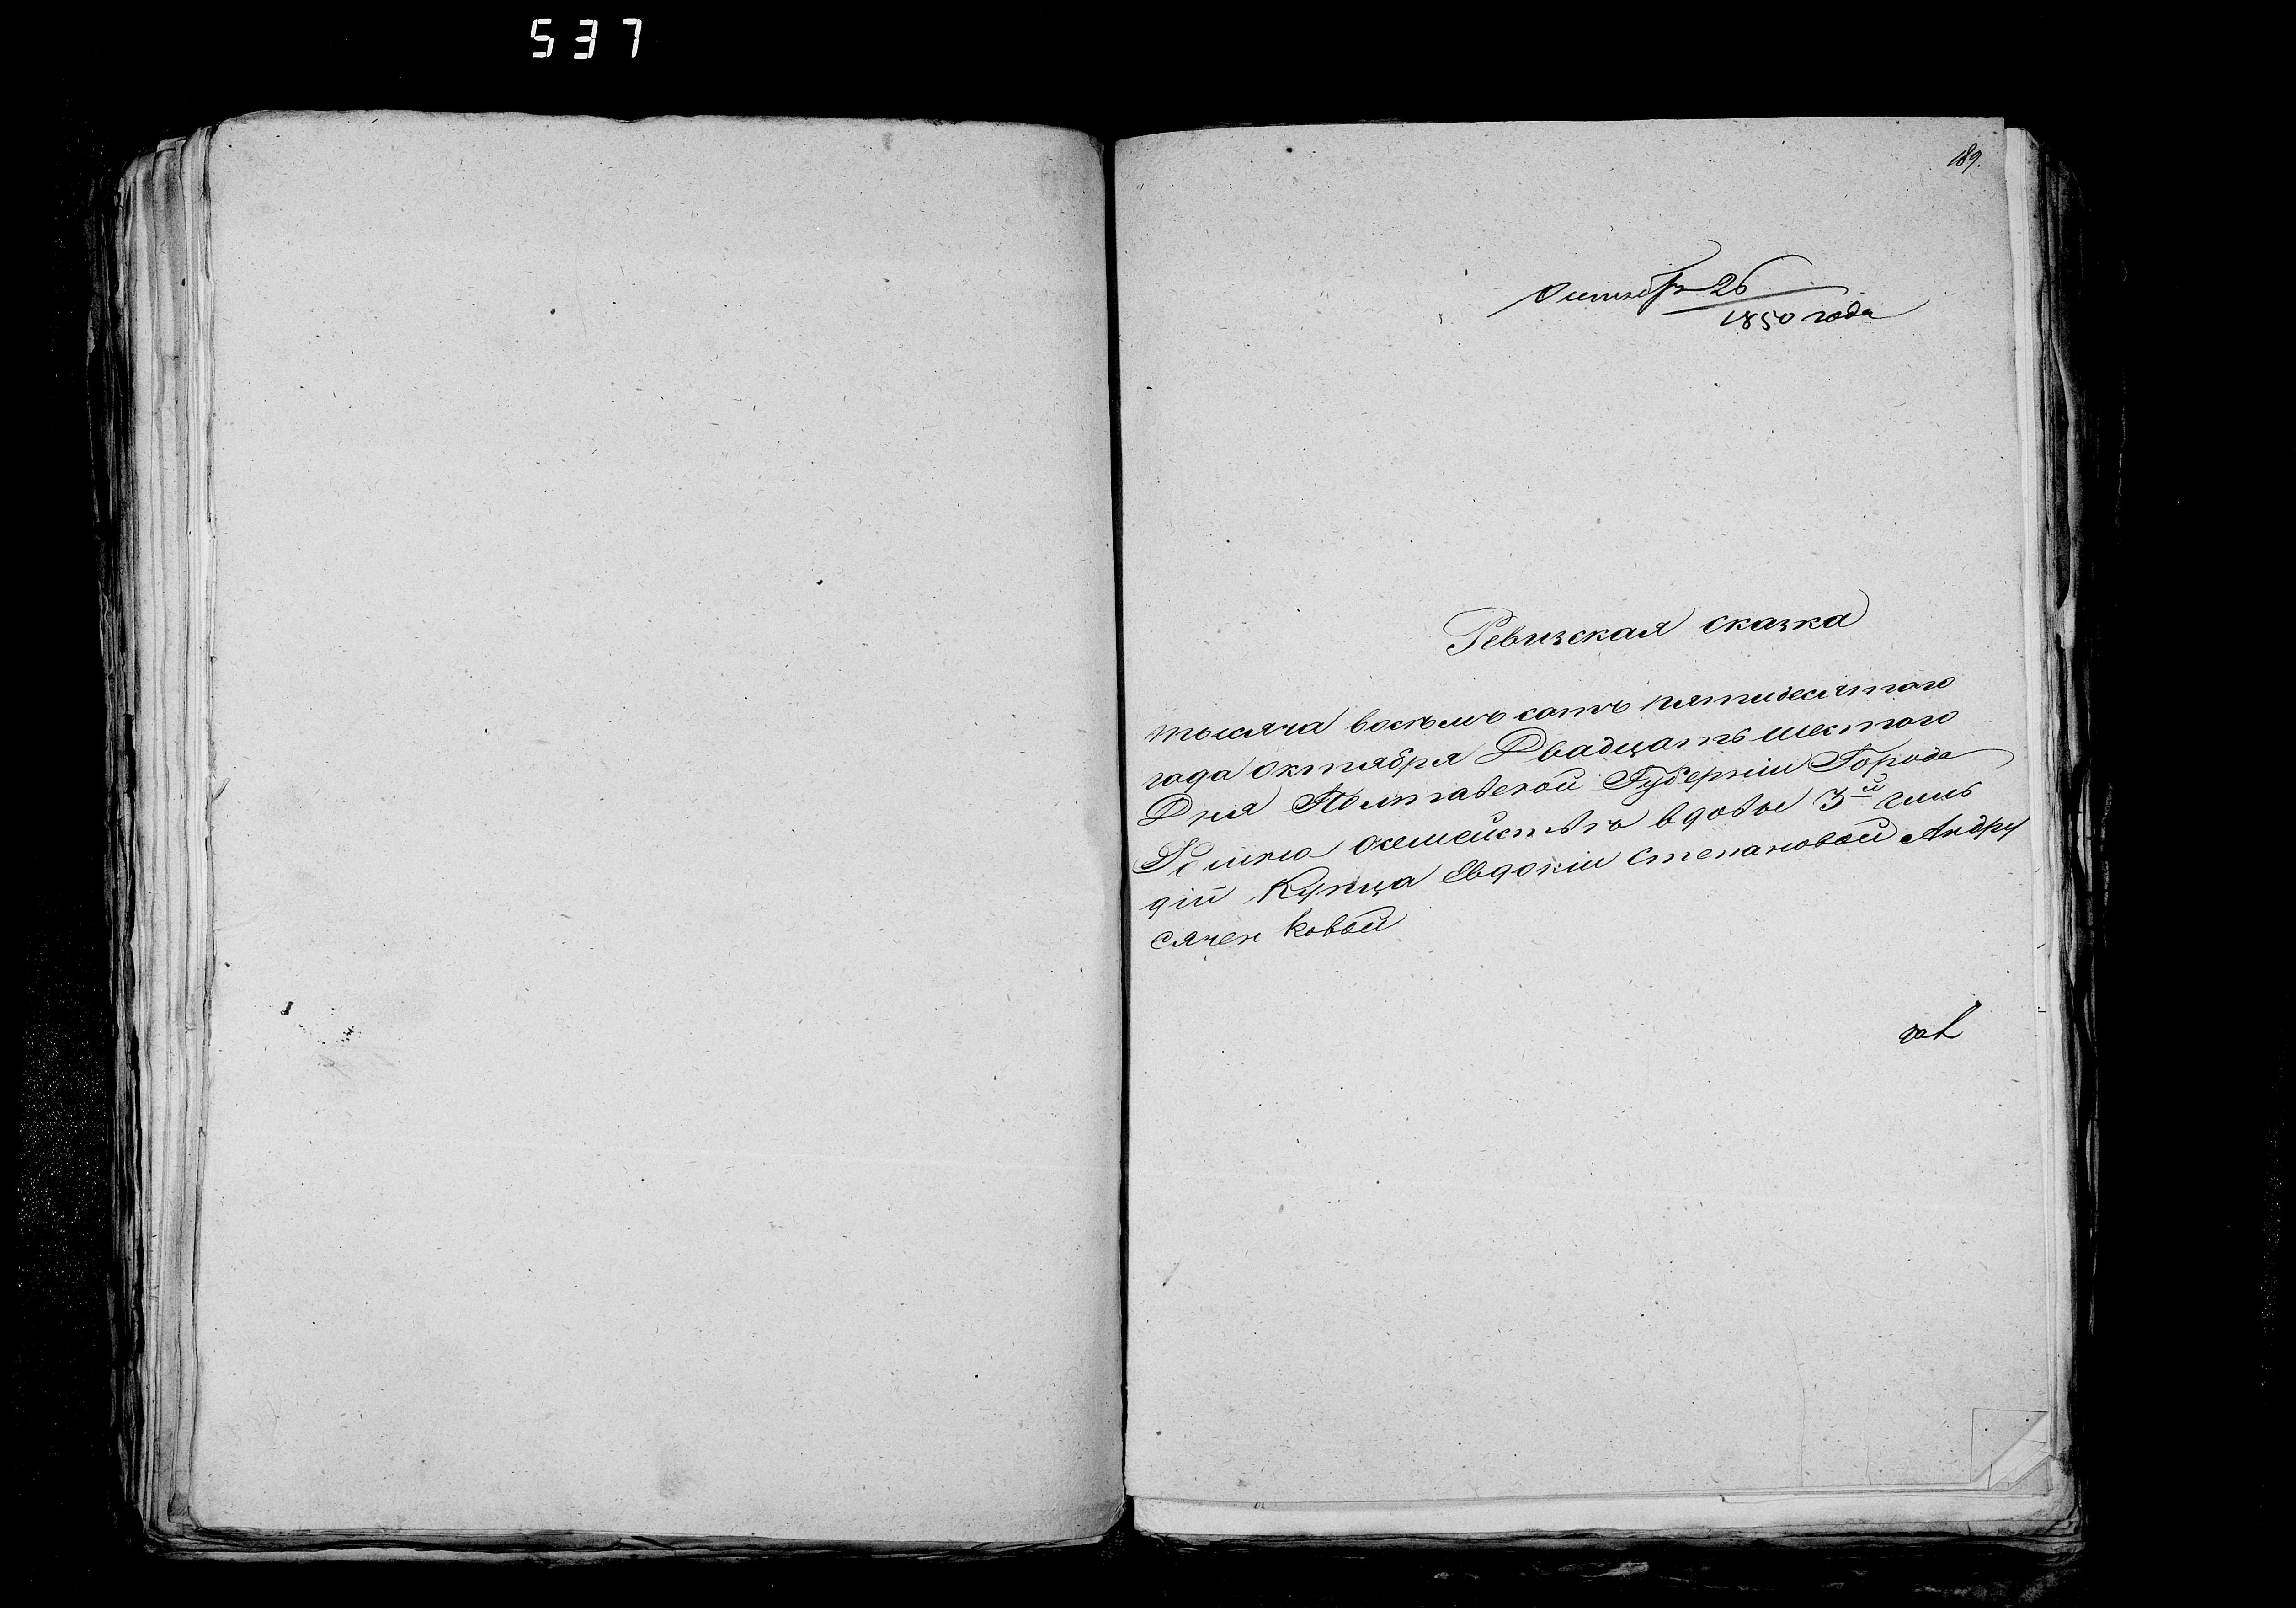 537
189.
Октября 26
1850 года
Ревизская сказка
тысяча восемъ сотъ пятидесятого
года октября Двадцать шестого
Дня Полтавской Губерніи Города
осемействѣ вдовы 3й гиль
діи Купца Евдокіи Степановой Андру
сячен ковой